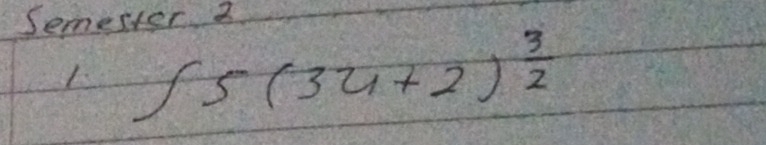 Semester 2
1. ∫ 5 (3u + 2)^{3/2}